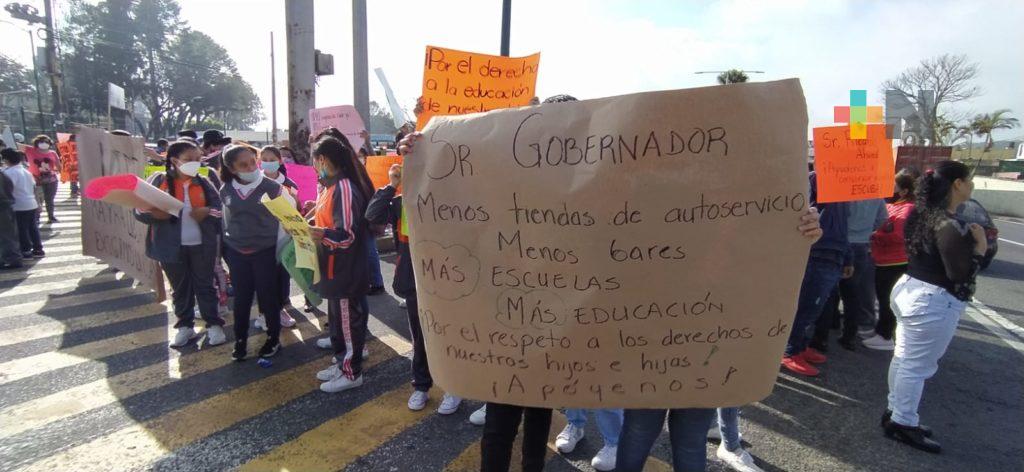 ¡Por el derecho
a la educación
de nuestr
Sr GOBERNADOR
Menos tiendas de autoservicio
Menos bares
MÁS ESCUELAS
MÁS EDUCACIÓN
¡Por el respeto a los derechos de
nuestros hijos e hijas!
¡Apóyenos!
Sr.
ESCUE